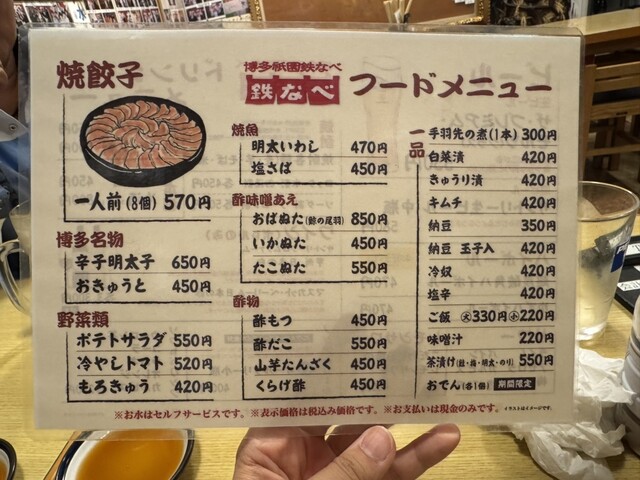 焼餃子
博多祇園鉄なべ
鉄なべ
フードメニュー
一人前(8個) 570円
博多名物
辛子明太子 650円
おきゅうと 450円
野菜類
ポテトサラダ 550円
冷やしトマト 520円
もろきゅう 420円
焼魚
明太いわし 470円
塩さば 450円
酢味噌あえ
おばぬた(鯨の尾羽) 850円
いかぬた 450円
たこぬた 550円
酢物
酢もつ 450円
酢だこ 550円
山芋たんざく 450円
くらげ酢 450円
一品
手羽先の煮(1本) 300円
白菜漬 420円
きゅうり漬 420円
キムチ 420円
納豆 350円
納豆 玉子入 420円
冷奴 420円
塩辛 420円
ご飯 大330円 小220円
味噌汁 220円
茶漬け(鮭・梅・明太・のり) 550円
おでん(各1個) 期間限定
※お水はセルフサービスです。※表示価格は税込み価格です。※お支払いは現金のみです。
イラストはイメージです。